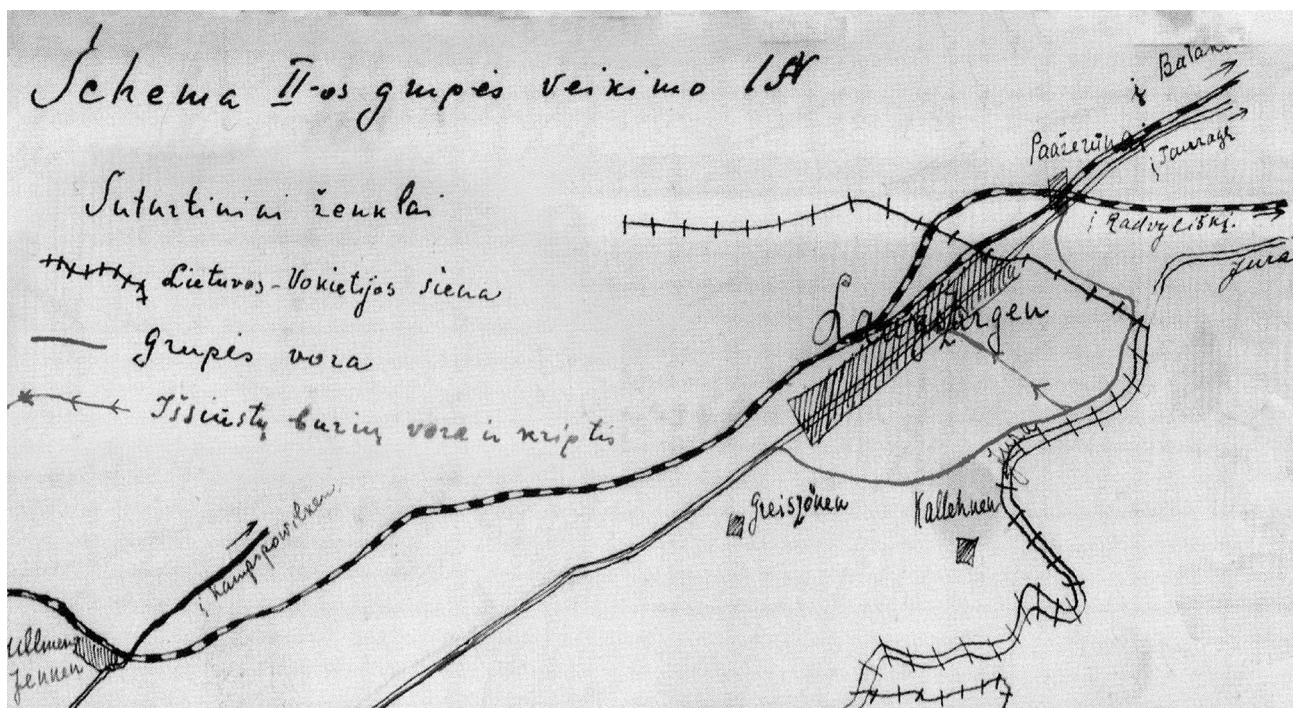 Schema II-os grupės veikimo
Sutartiniai ženklai
Lietuvos-Vokietijos siena
Grupės vora
Išsiųstų burių vora ir kriptis
į Batak
Paäžerūnai
į Tauragę
į Radvyliškį.
Jura
Laugszargen
Jura
Greiszönen
Kallehnen
į Kampspowilken
Jennen